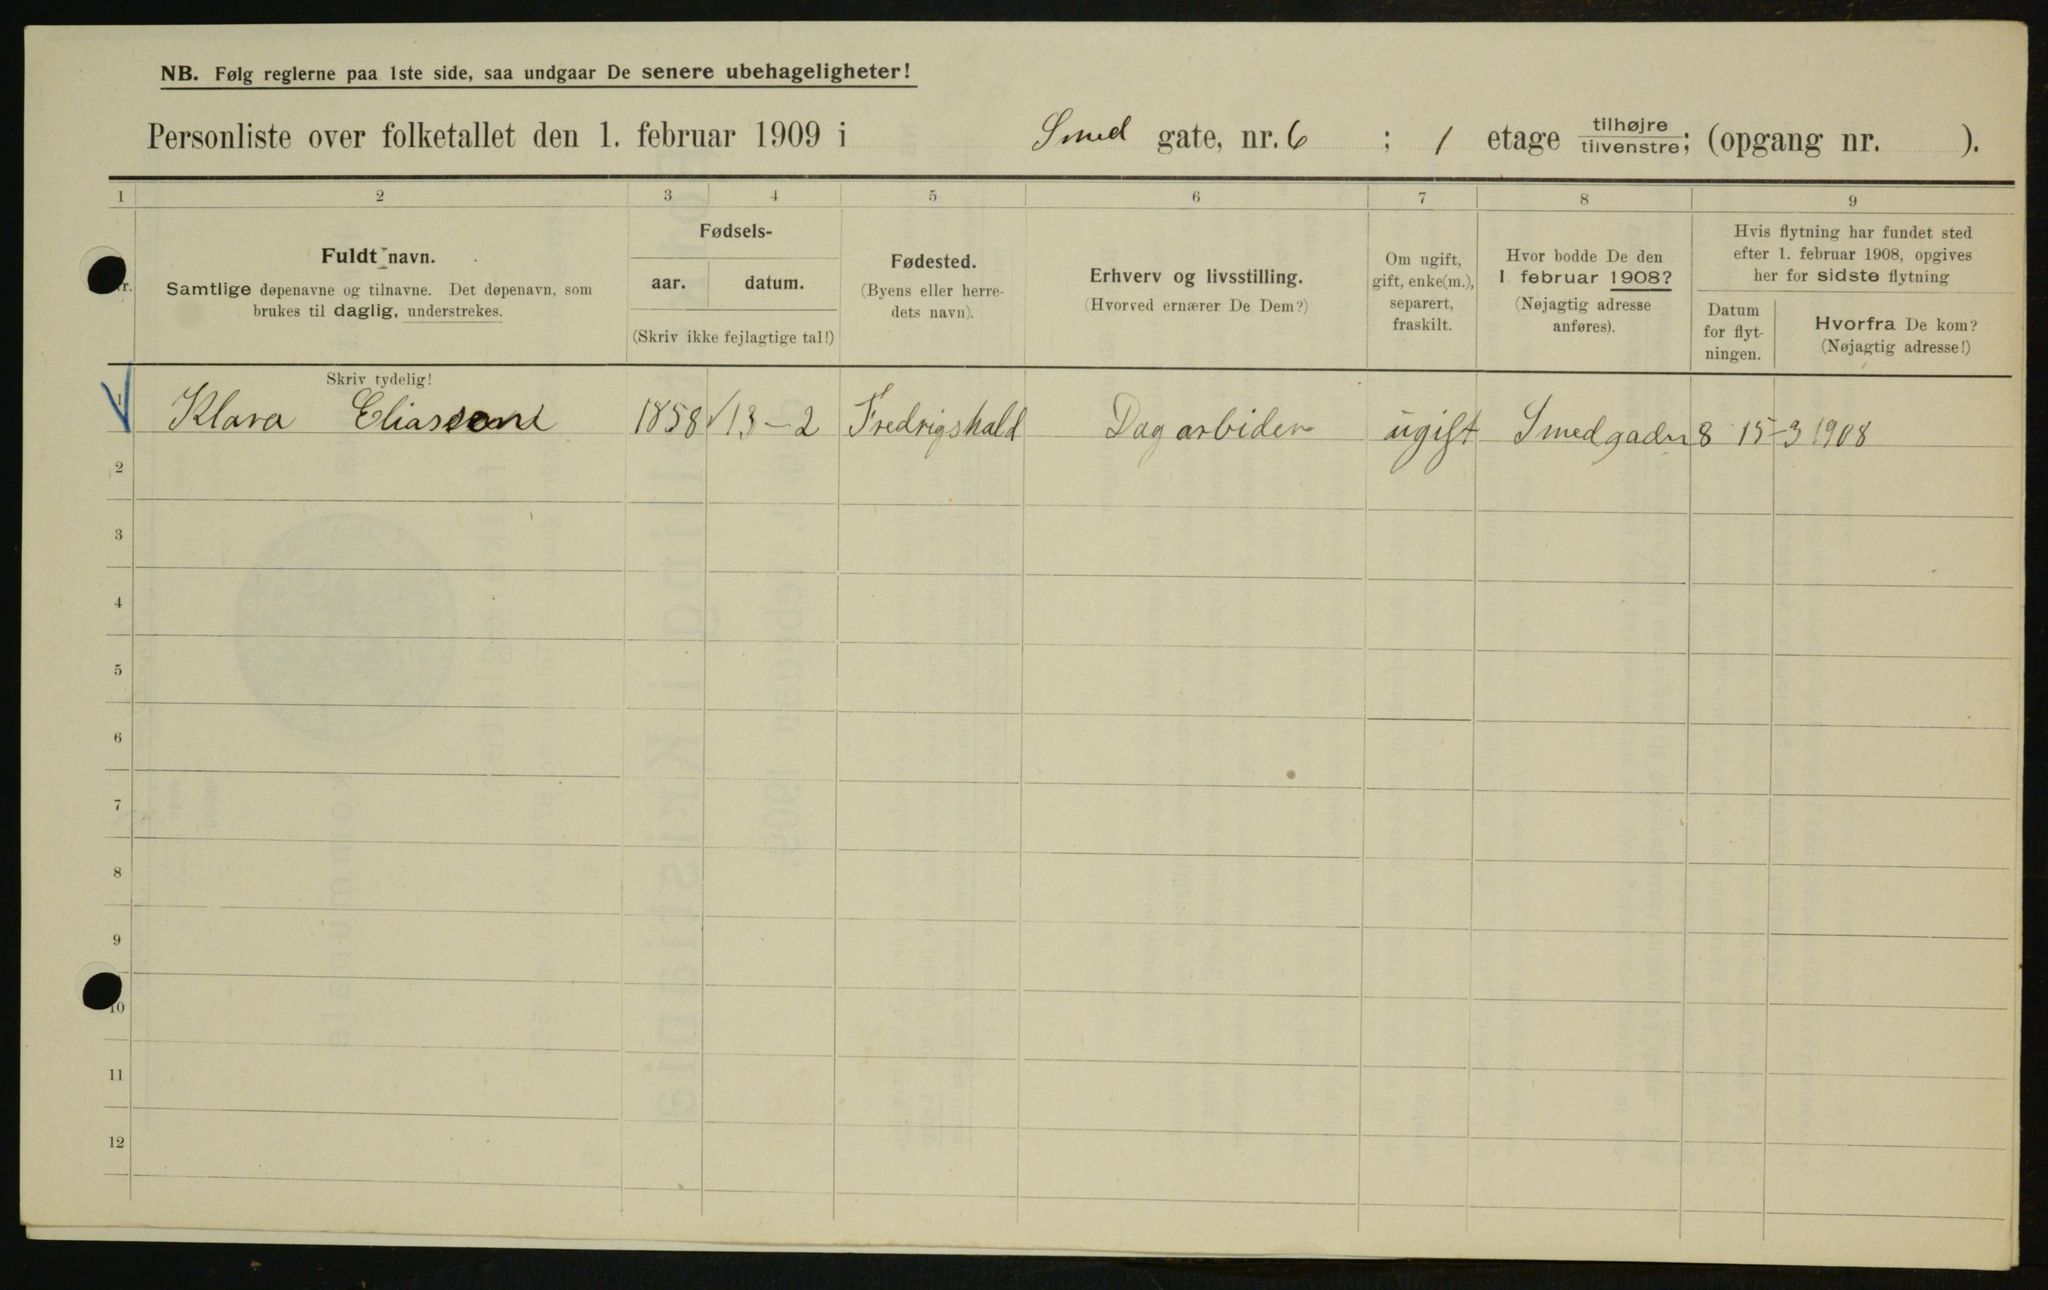 NB. Følg reglerne paa 1ste side, saa undgaar De senere ubehageligheter!
Personliste over folketallet den 1. februar 1909 i Smed gate, nr. 6 ; 1 etage tilhøjre tilvenstre; (opgang nr. ).
1 2 3 4 5 6 7 8 9
Nr.
Fuldt navn.
Samtlige døpenavne og tilnavne. Det døpenavn, som
brukes til daglig, understrekes.
Fødsels-
aar. datum.
(Skriv ikke fejlagtige tal!)
Fødested.
(Byens eller herre-
dets navn).
Erhverv og livsstilling.
(Hvorved ernærer De Dem?)
Om ugift,
gift, enke(m.),
separert,
fraskilt.
Hvor bodde De den
1 februar 1908?
(Nøjagtig adresse
anføres).
Hvis flytning har fundet sted
efter 1. februar 1908, opgives
her for sidste flytning
Datum
for flyt-
ningen.
Hvorfra De kom?
(Nøjagtig adresse!)
Skriv tydelig!
1 Klara 1858 13-2 Fredrigshald Dagarbider ugift Smedgaden 8 15-3 1908
2
3
4
5
6
7
8
9
10
11
12